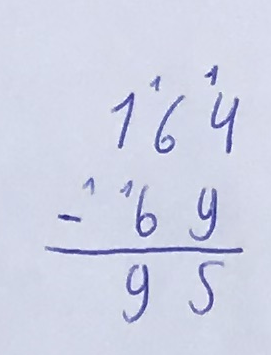 ¹ ¹
164
- ¹ ¹69
95